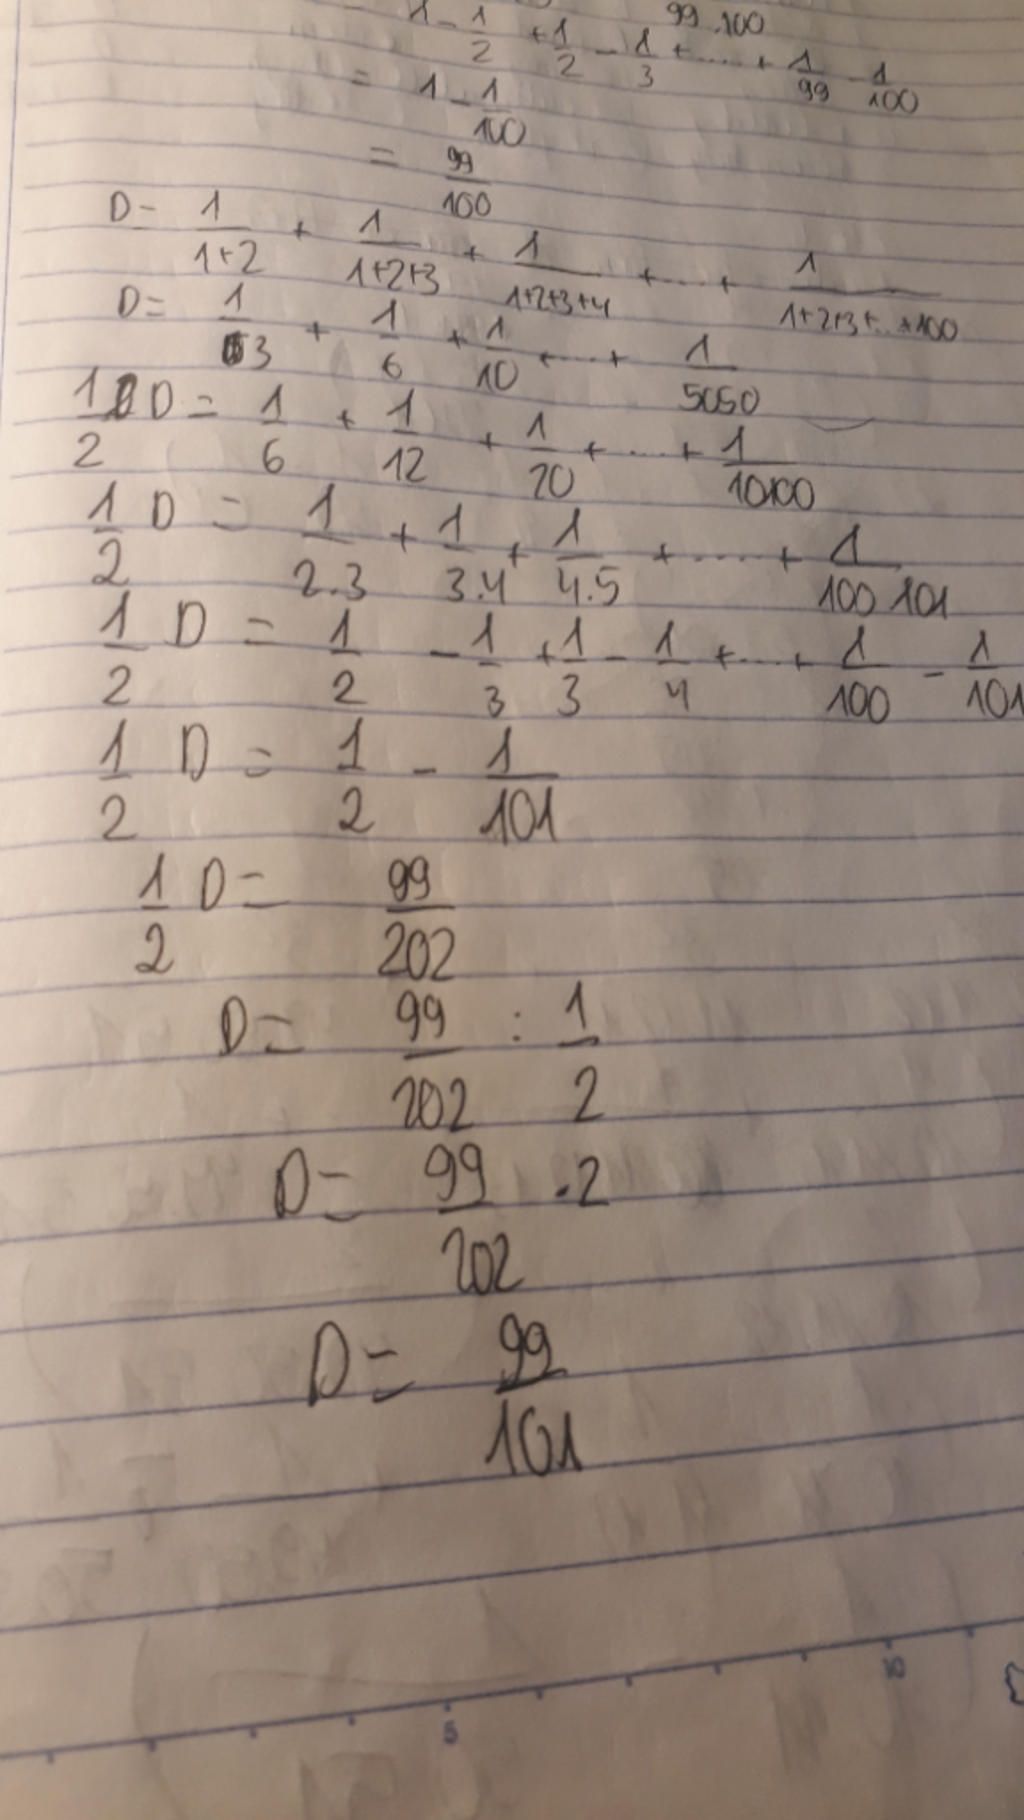 99.100
1 - 1/2 + 1/2 - 1/3 + .... + 1/99 - 1/100
= 1 - 1/100
= 99/100
D = 1/1+2 + 1/1+2+3 + 1/1+2+3+4 + ... + 1/1+2+3+..+100
D = 1/3 + 1/6 + 1/10 + ... + 1/5050
1/2 D = 1/6 + 1/12 + 1/20 + .... + 1/10100
1/2 D = 1/2.3 + 1/3.4 + 1/4.5 + .... + 1/100 101
1/2 D = 1/2 - 1/3 + 1/3 - 1/4 + ... + 1/100 - 1/101
1/2 D = 1/2 - 1/101
1/2 D = 99/202
D = 99/202 : 1/2
D = 99/202 . 2
D = 99/101
5 10